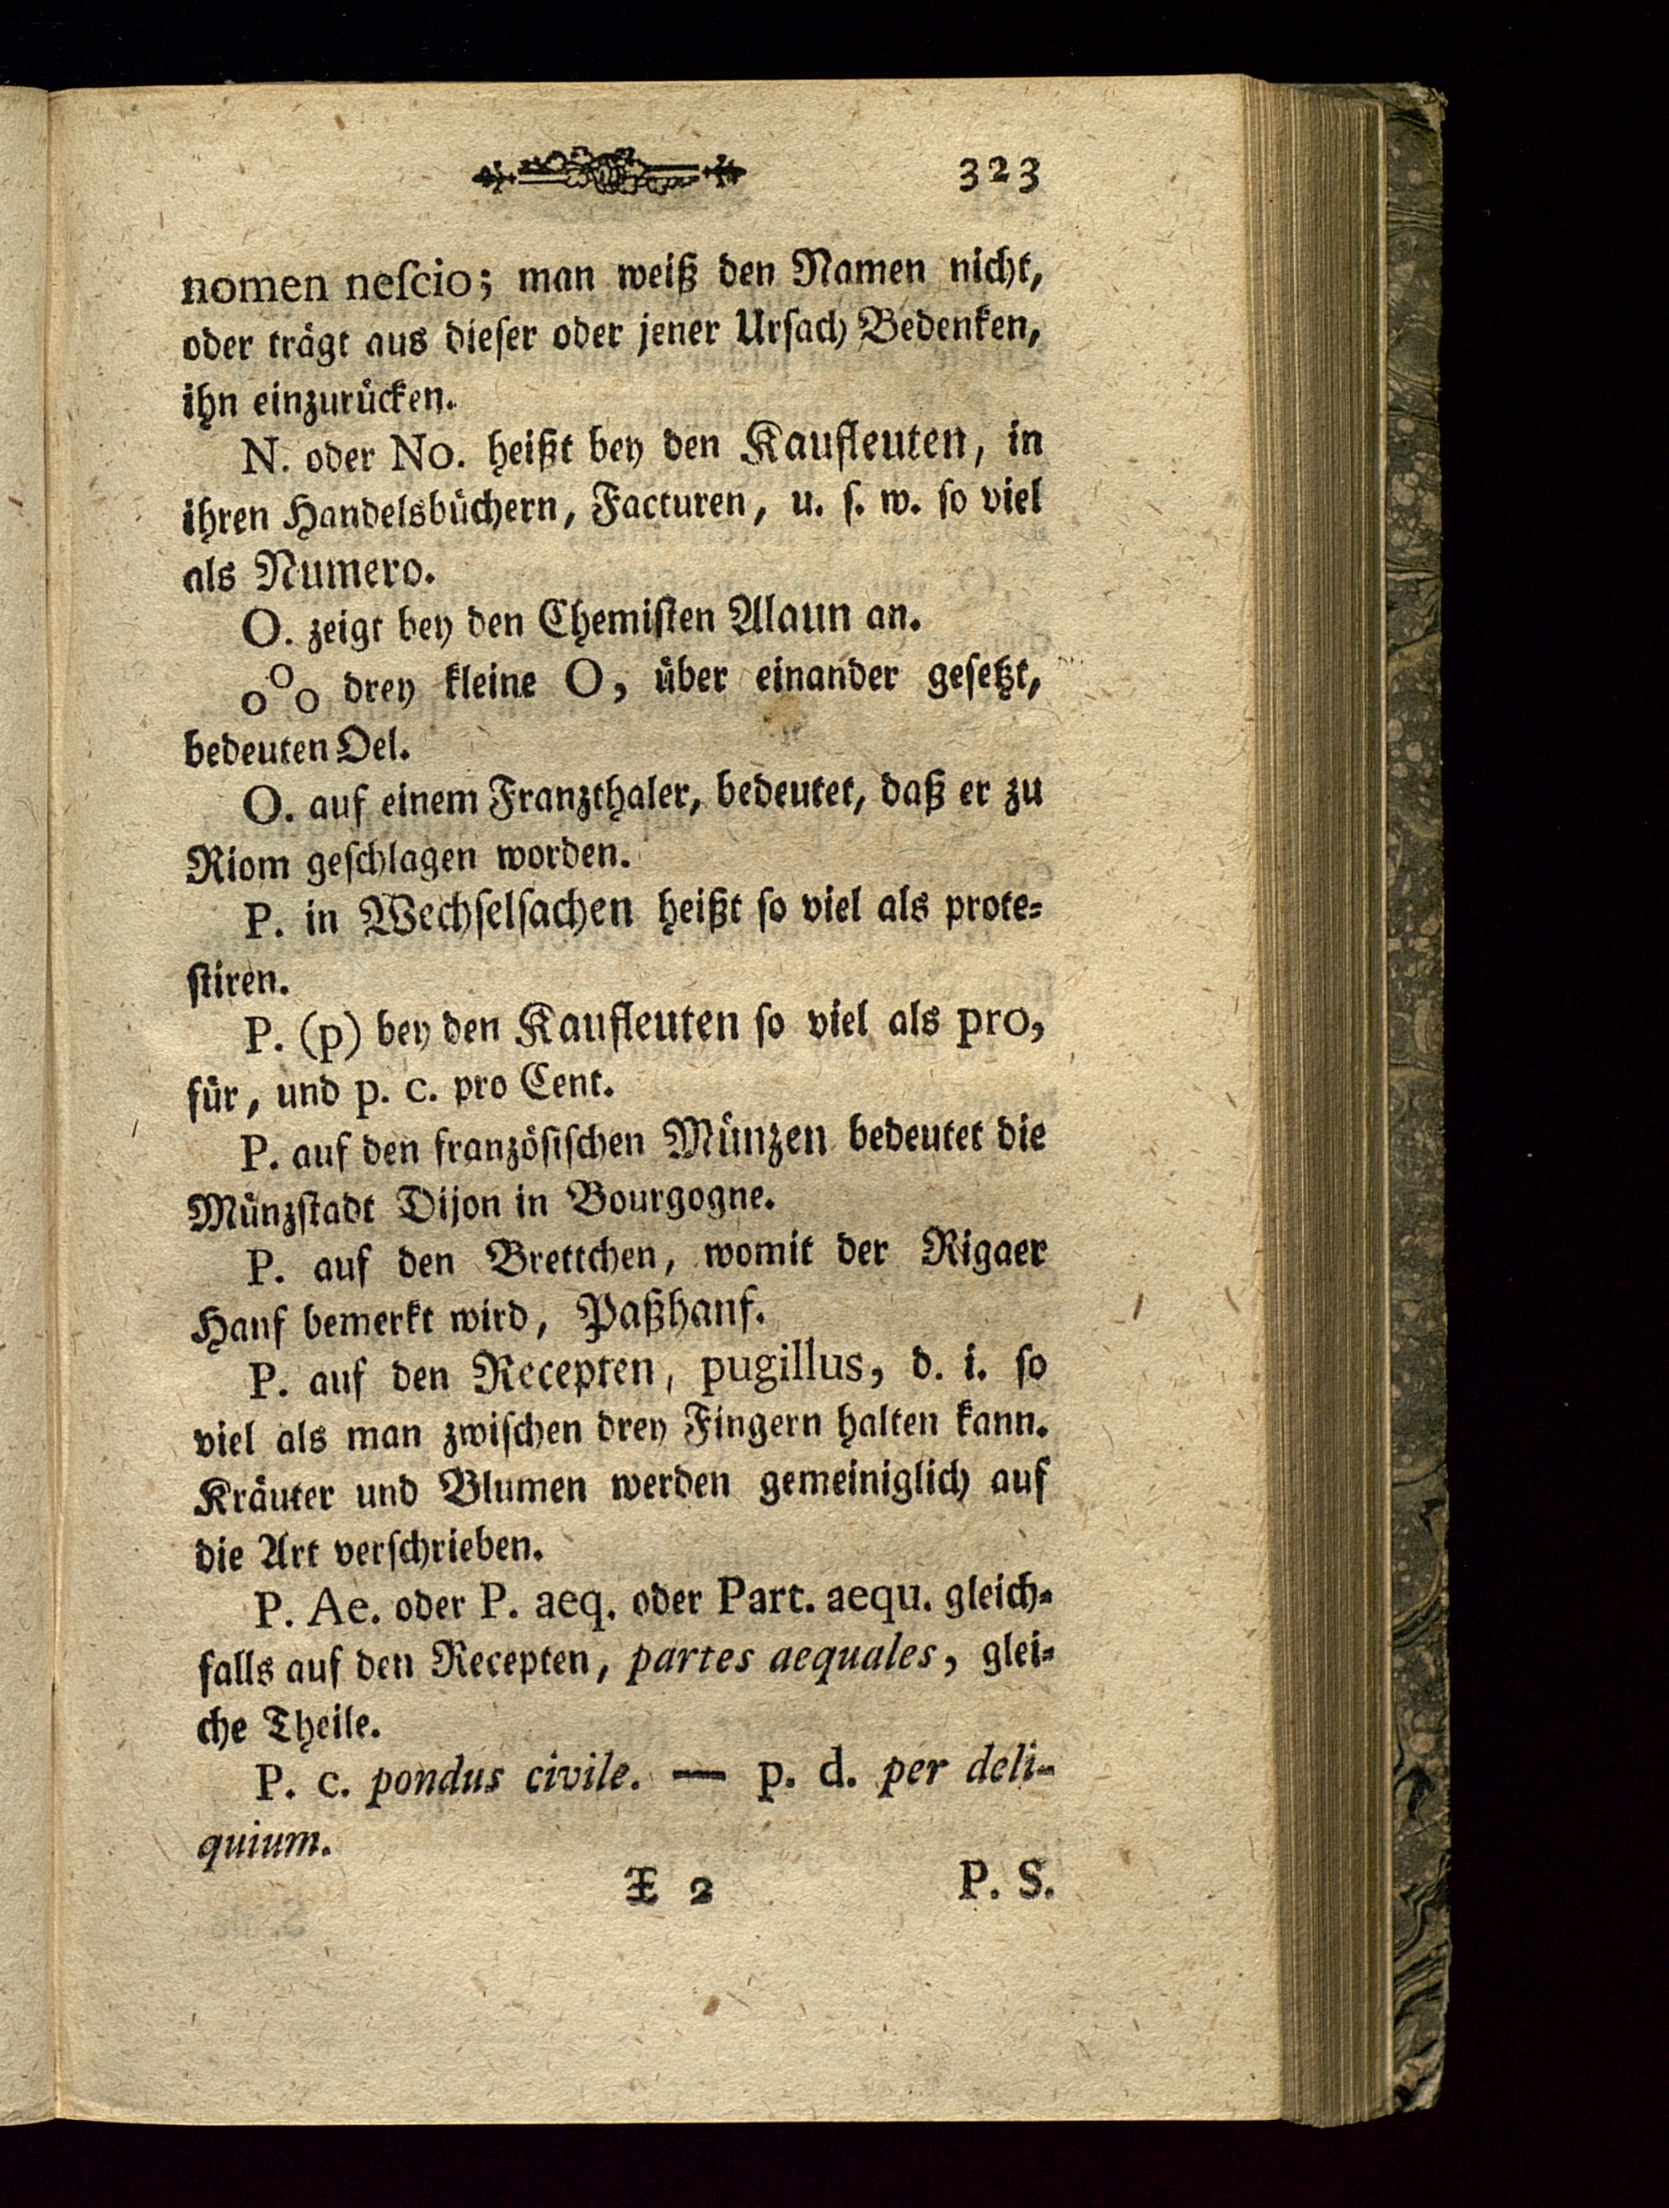 323
nomen neſcio; man weiß den Namen nicht,
oder trägt aus dieſer oder jener Urſach Bedenken,
ihn einzurücken.
N. oder No. heißt bey den Kaufleuten, in
ihren Handelsbüchern, Facturen, u. ſ. w. ſo viel
als Numero.
O. zeigt bey den Chemiſten Alaun an.
o O o drey kleine O, über einander geſetzt,
bedeuten Oel.
O. auf einem Franzthaler, bedeutet, daß er zu
Riom geſchlagen worden.
P. in Wechſelſachen heißt ſo viel als prote⸗
ſtiren.
P. (p) bey den Kaufleuten ſo viel als pro,
für, und p. c. pro Cent.
P. auf den franzöſiſchen Münzen bedeutet die
Münzſtadt Dijon in Bourgogne.
P. auf den Brettchen, womit der Rigaer
Hanf bemerkt wird, Paßhanf.
P. auf den Recepten, pugillus, d. i. ſo
viel als man zwiſchen drey Fingern halten kann.
Kräuter und Blumen werden gemeiniglich auf
die Art verſchrieben.
P. Ae. oder P. aeq. oder Part. aequ. gleich⸗
falls auf den Recepten, partes aequales, glei⸗
che Theile.
P. c. pondus civile. — p. d. per deli-
quium.
X 2 P. S.